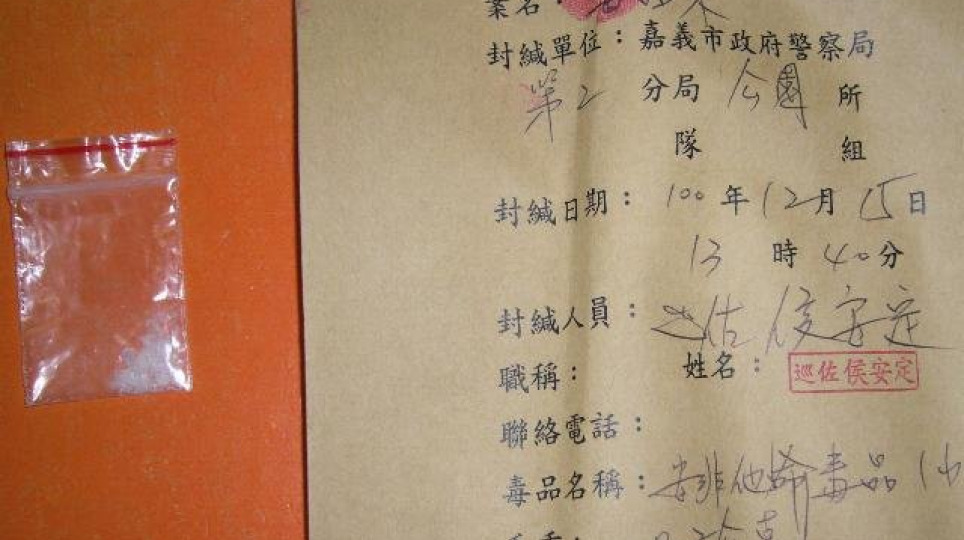 案名：
封緘單位：嘉義市政府警察局
第2 分局 公園 所
隊 組
封緘日期：100年12月15日
13時40分
封緘人員：巡佐侯安定
職稱： 姓名：巡佐侯安定
聯絡電話：
毒品名稱：安非他命毒品